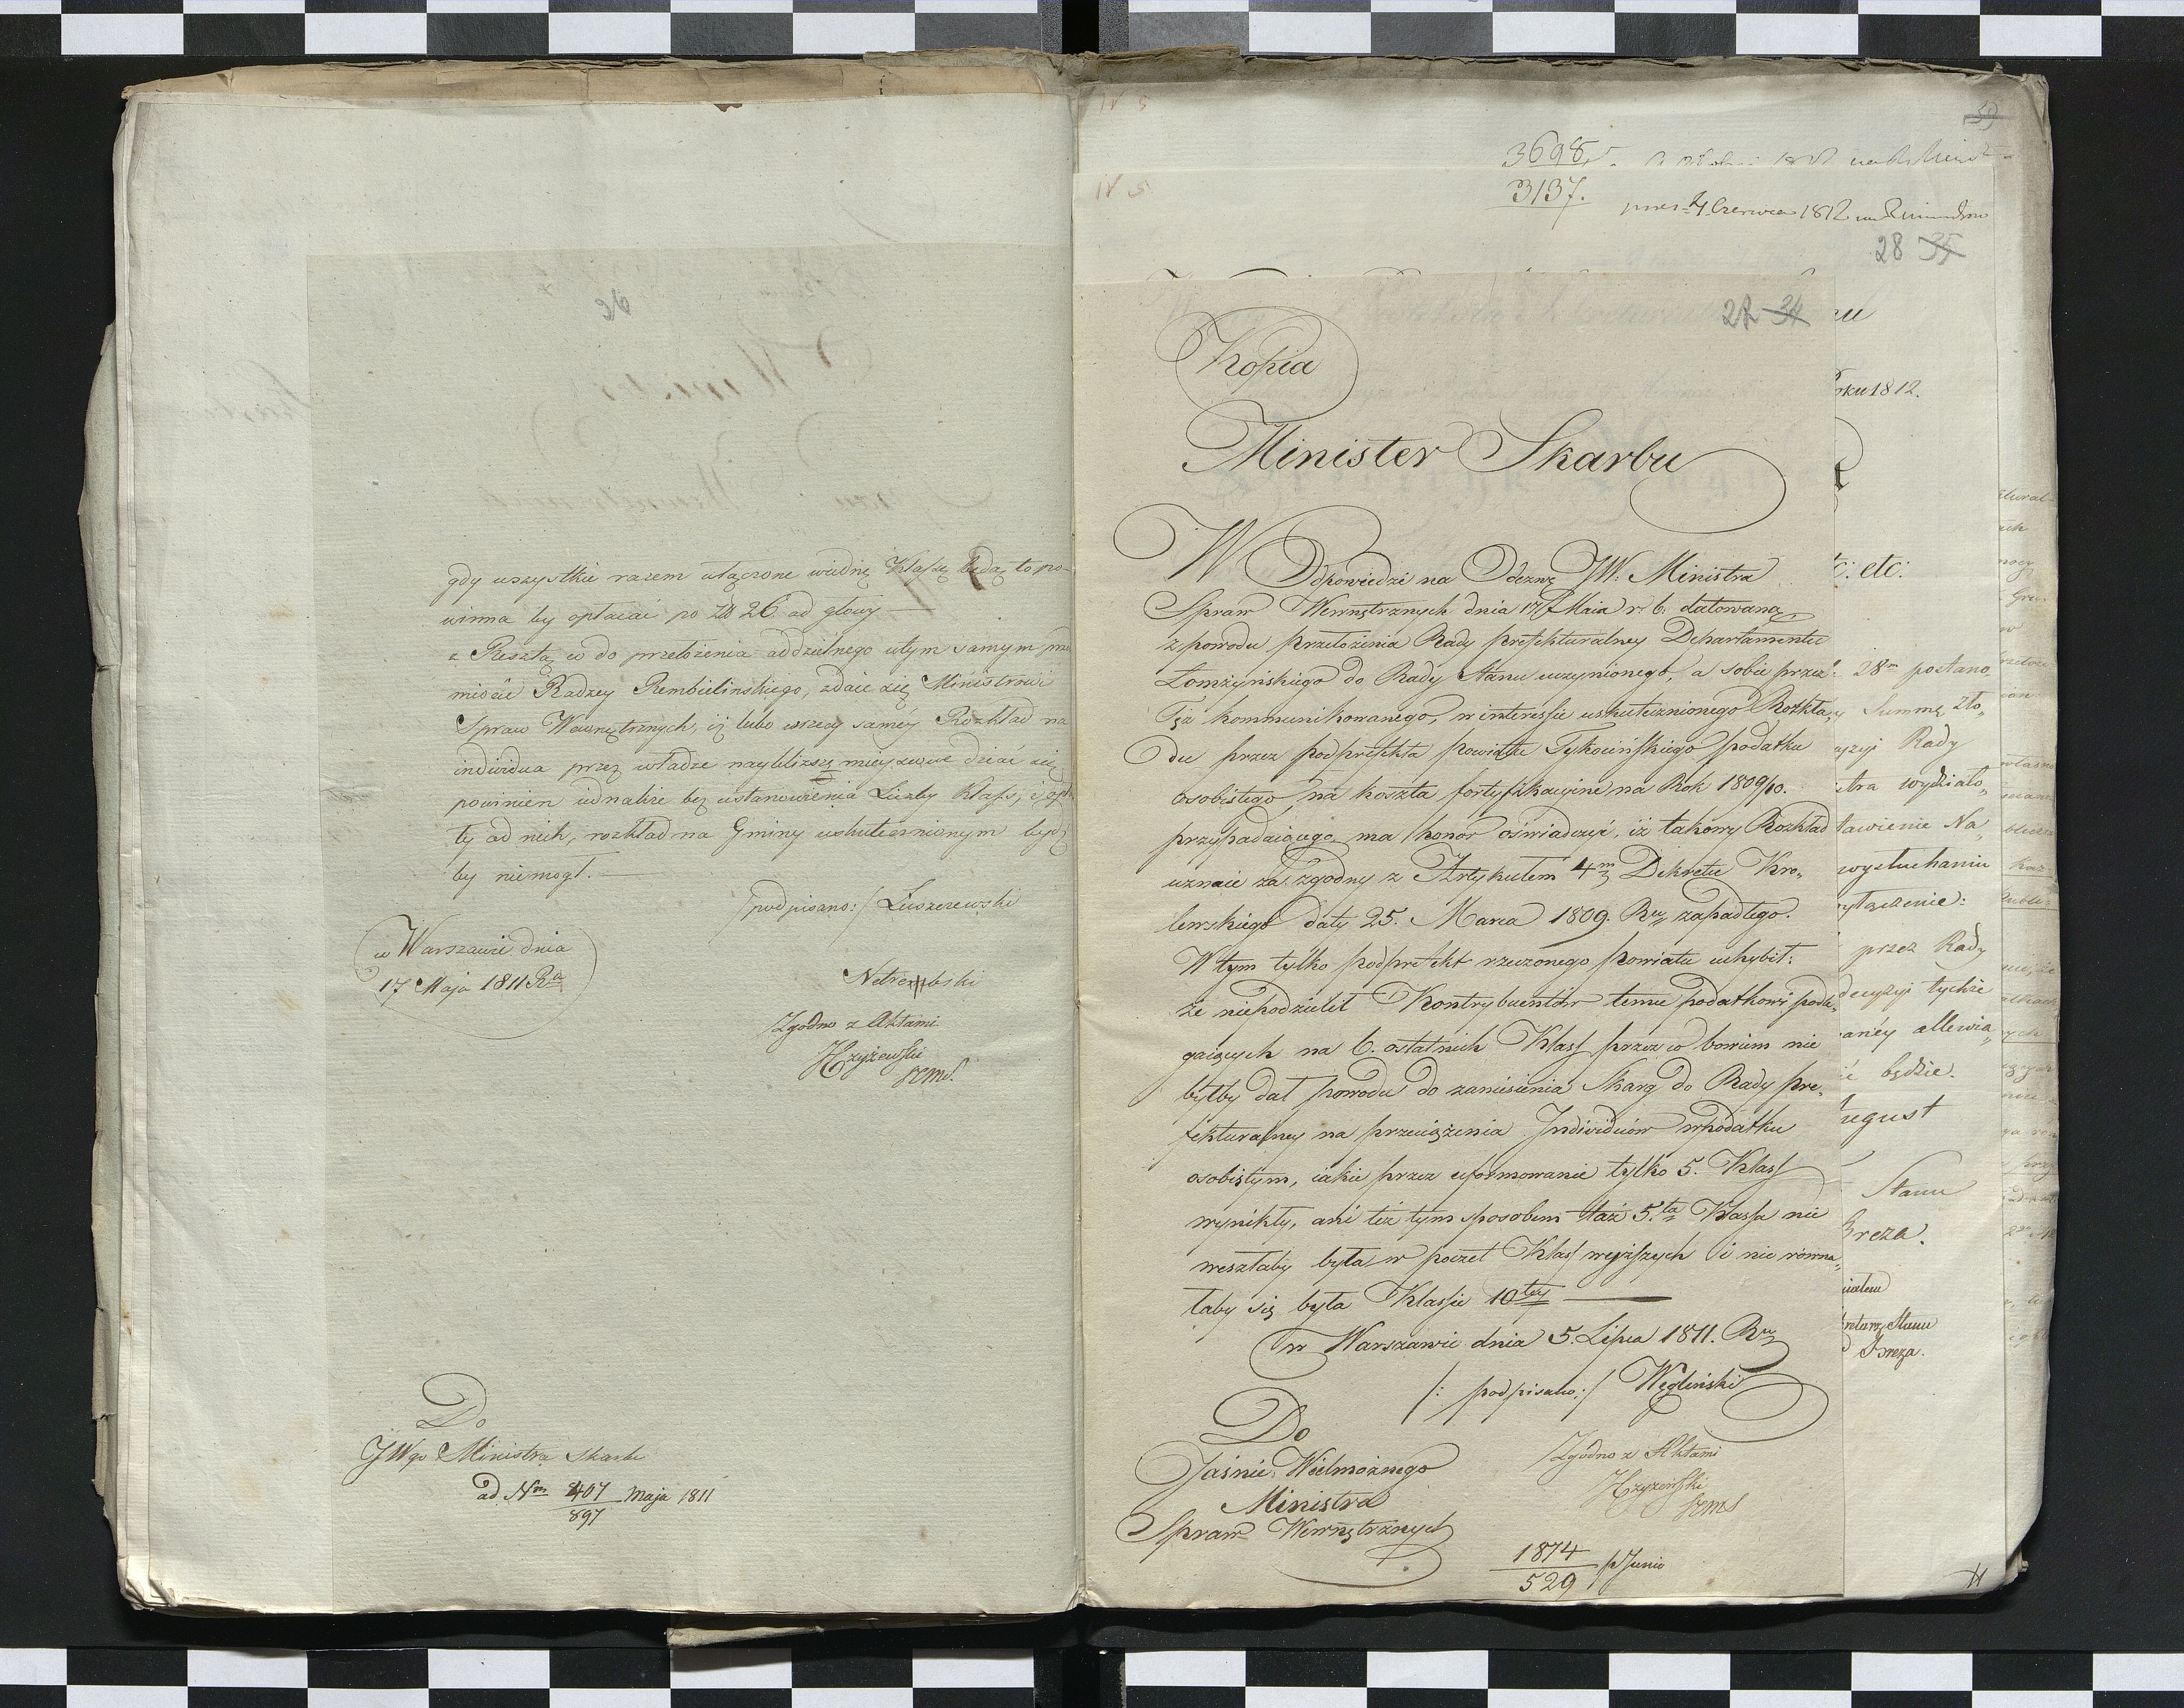 gdy wszystkie razem włączone wiednę Klassę będą to po-
winna by opłacać po zł 26 od głowy —
z Resztą co do przełożenia oddzielnego wtym samym prze
miocie Radzcy Rembielinskiego, zdaie się Ministrowi
Spraw Wewnętrznych, iż lubo wrzeczy saméy Rozkład na
individua przez władze naybliższą mieyscowe dziać się
powinien iednakże bez ustanowienia Liczby Klass, i opła
ty od nich, rozkład na Gminy uskutecznionym bydź
by niemogł. —
/podpisano:/ Łuszczewski
w Warszawie dnia
17 Maja 1811 Ru
Netrembski
Zgodno z Aktami
Krzyżewski
SEMS.
Do
JWgo Ministra Skarbu
ad Nm 407 Maja 1811
897
IV 5
3698
IV 5
3137.
pres 24 Czerwca 1812
28 35
27 34
Kopia
Minister Skarbu
W Odpowiedzi na Odezwę JW. Ministra
Spraw Wewnętrznych dnia 17 Maia r. b. datowaną
z powodu przełożenia Rady prefekturalney Departamentu
Łomżyńskiego do Rady Stanu uczynionego, a sobie przez
Tęż kommunikowanego, w interessie uskutecznionego Rozkła„
du przez podprefekta powiatu Tykocińskiego podatku
osobistego na koszta fortyfikacyine na Rok 1809/10.
przypadaiącego ma honor oświadczyć, iż takowy Rozkład
uznaie za zgodny z Artykułem 4m Dekretu Kro„
lewskiego daty 25. Marca 1809. Ru zapadłego.
W tym tylko podprefekt rzeczonego powiatu uchybił:
że niepodzielił Kontrybuentów temu podatkowi podle„
gaiących na 6. ostatnich Klass przez co bowiem nie
byłby dał powodu do zaniesienia Skarg do Rady pre„
fekturalney na przeciążenia Individuów wpodatku
osobistym, iakie przez uformowanie tylko 5. Klass
wynikły, ani też tym sposobem taż 5.ta Klassa nie
weszłaby była w poczet Klass wyższych i nie równa„
łaby się była Klassie 10tey —
w Warszawie dnia 5. Lipca 1811. Ru
/: podpisano:/ Węgliński
Do
Jaśnie Wielmożnego
Ministra
Spraw Wewnętrznych
Zgodno z Aktami
Krzyżewski
SEMS
1874 p Junio
529
oku 1812.
etc:
28m postano
Summę zło„
Rady
tra wydziało„
tawienie Na„
wysłuchaniu
przez Rady
decyzyi tychże
allewia„
będzie.
ugust
Stanu
Breza.
retarz Stanu
Breza.